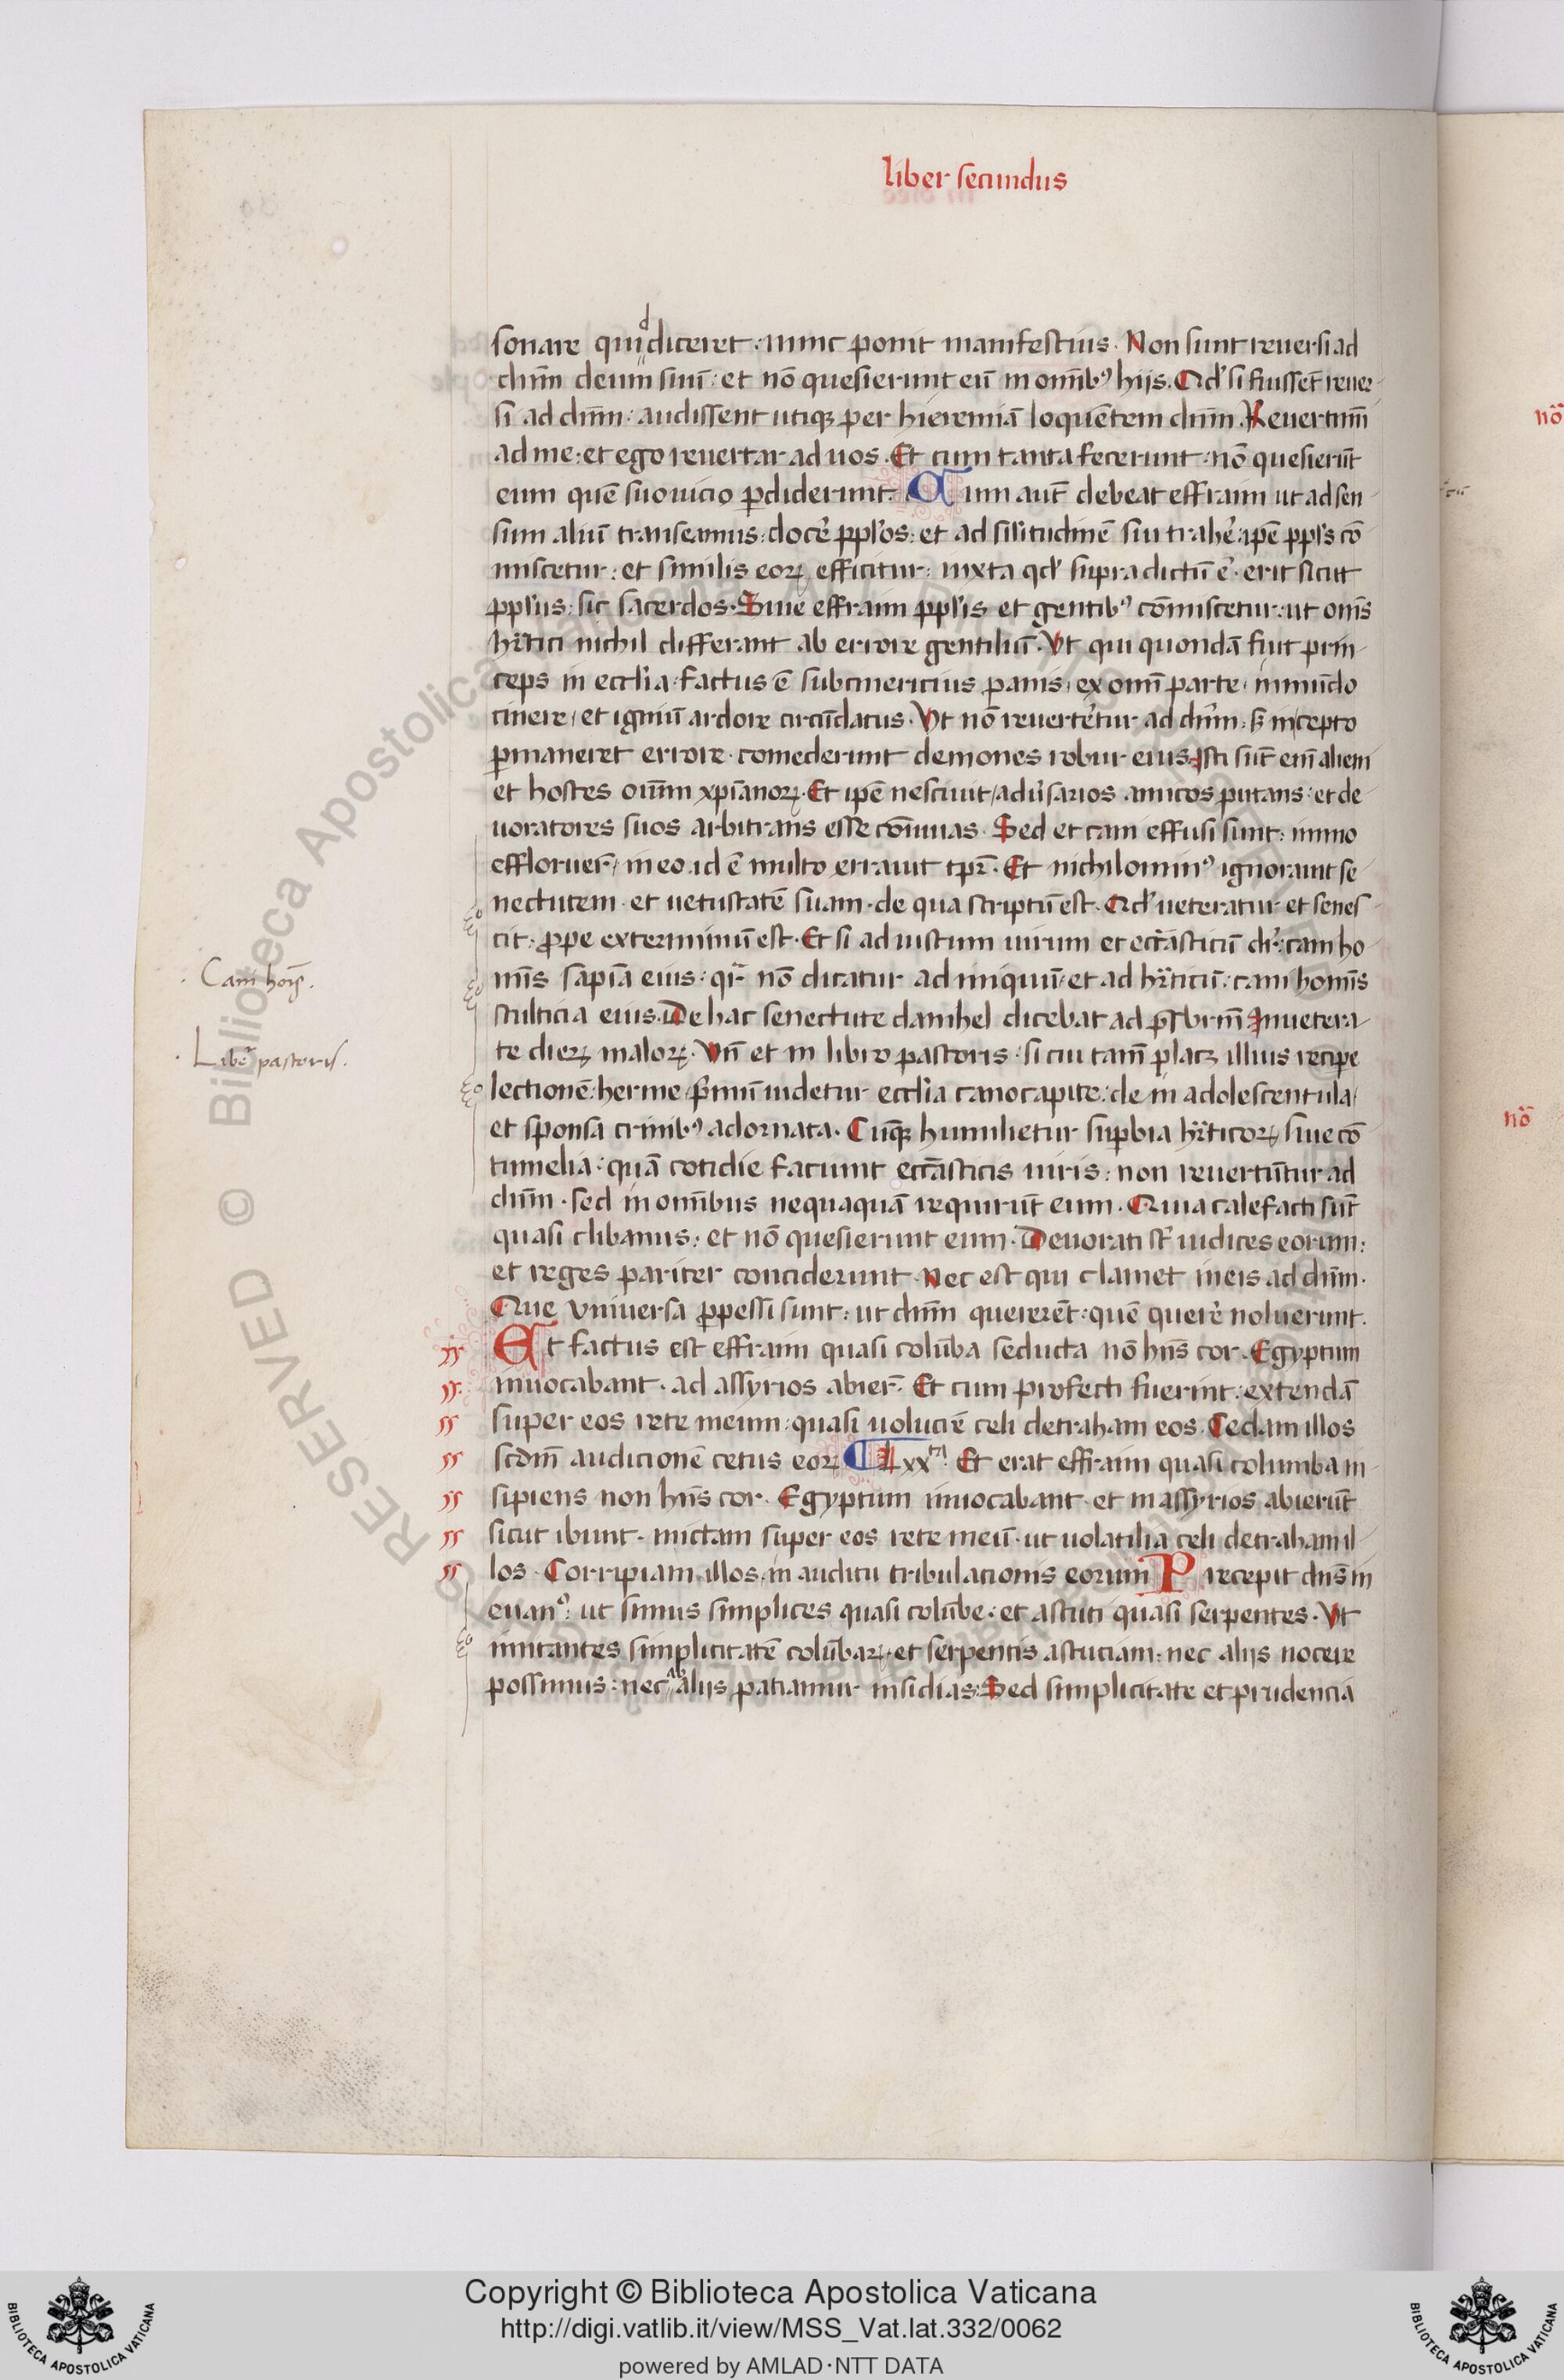 liber secundus
sonare quid diceret : nunc ponit manifestius. Non sunt reuersi ad
dn̄m deum suū : et nō quesierunt eū in om̄ibꝯ hijs. Qđ si fuissēt reuer-
si ad dn̄m : audissent utiqꝫ per hieremiā loquētem dn̄m. Reuertimī
ad me : et ego reuertar ad uos. Et cum tanta fecerunt : nō quesierūt
eum quē suo uicio ꝑdiderunt. Cum aut̄ debeat effraim ut ad sen-
sum aliū transeamus : docer̄ ppl'os : et ad sil'itudinē sui traher̄ : ip̄e ppl'is cō
miscetur : et similis eoꝝ efficitur : iuxta qđ supra dictū ē. erit sicut
ppl'us : sic sacerdos. Siue effraim ppl'is et gentibꝯ cōmiscetur : ut om̄s
hr̄tici nichil differant ab errore gentiliū. Vt qui quondā fuit prin-
ceps in eccl'ia : factus ē subcinericius panis, ex omni parte, inmūdo
cinere, et igniū ardore circūdatus. Vt nō reuertēt̄ur ad dn̄m : s; incepto
ꝑmaneret errore. comederunt demones robur eius. Isti sūt eni alieni
et hostes omium xp̄ianoꝝ. Et ip̄e nesciuit, aduersarios amicos putans : et de-
uoratores suos arbitrans esse cōuiuas. Sed et cani effusi sunt : immo
effloruer̄, in eo. id ē multo errauit tp̄r̄. Et nichilominꝯ ignorauit se-
nectutem et uetustatē suam. de qua scriptū est. Qđ ueteratur et senes-
cit : prope exterminiū est. Et si ad iustum uirum et eccl̄asticū dr̄ : cani ho-
mīs sapiā eius : qr̄ nō dicatur ad iniquū et ad hr̄ticū : cani hominis
stulticia eius. De hac senectute danihel dicebat ad p̄sbr̄m. Inuetera-
te dieꝝ maloꝝ. Vn̄ et in libro pastoris : si cui tam̄ placꝫ illius recipe
lectionē : herme, pͥmū uidetur eccl'ia cano capite : de in adolescentula,
et sponsa crinibꝯ adornata. Cūqꝫ humilietur suꝑbia hr̄ticoꝝ, siue cō
tumelia : quā cotidie faciunt eccl̄asticis uiris : non reuertūtur ad
dn̄m. sed in omnibus nequaquā requirūt eum. Quia calefacti sūt
quasi clibanus : et nō quesierunt eum. Deuorati st̄ iudices eorum :
et reges pariter conciderunt. Nec est qui clamet in eis ad dn̄m.
Que vniuersa ꝑpessi sunt : ut dn̄m quererēt : quē querer̄ noluerunt.
Et factus est effraim quasi colūba seducta nō hn̄s cor. Egyptum
inuocabant. ad assyrios abier̄. Et cum profecti fuerint : extendā
super eos rete meum : quasi uolucrē celi detraham eos. Cedam illos
scđm audicionē cetus eoꝝ LXX. Et erat effraim quasi columba in-
sipiens non hn̄s cor. Egyptum inuocabant et in assyrios abierūt
sicut ibunt. mictam super eos rete meū. ut uolatilia celi detraham il-
los. Corripiam illos, in auditu tribulacionis eorum. Precepit dn̄s in
euanº : ut simus simplices quasi colūbe : et astuti quasi serpentes. Vt
imitantes simplicitatē colūbaꝝ, et serpentis astuciam : nec alijs nocere
possimus : nec ab alijs patiamur insidias. Sed simplicitate et prudencia
. Cani hoīs .
. Liber pastoris .
nō
nō
Copyright © Biblioteca Apostolica Vaticana
http://digi.vatlib.it/view/MSS_Vat.lat.332/0062
powered by AMLAD·NTT DATA
BIBLIOTECA APOSTOLICA VATICANA
BIBLIOTECA APOSTOLICA VATICANA